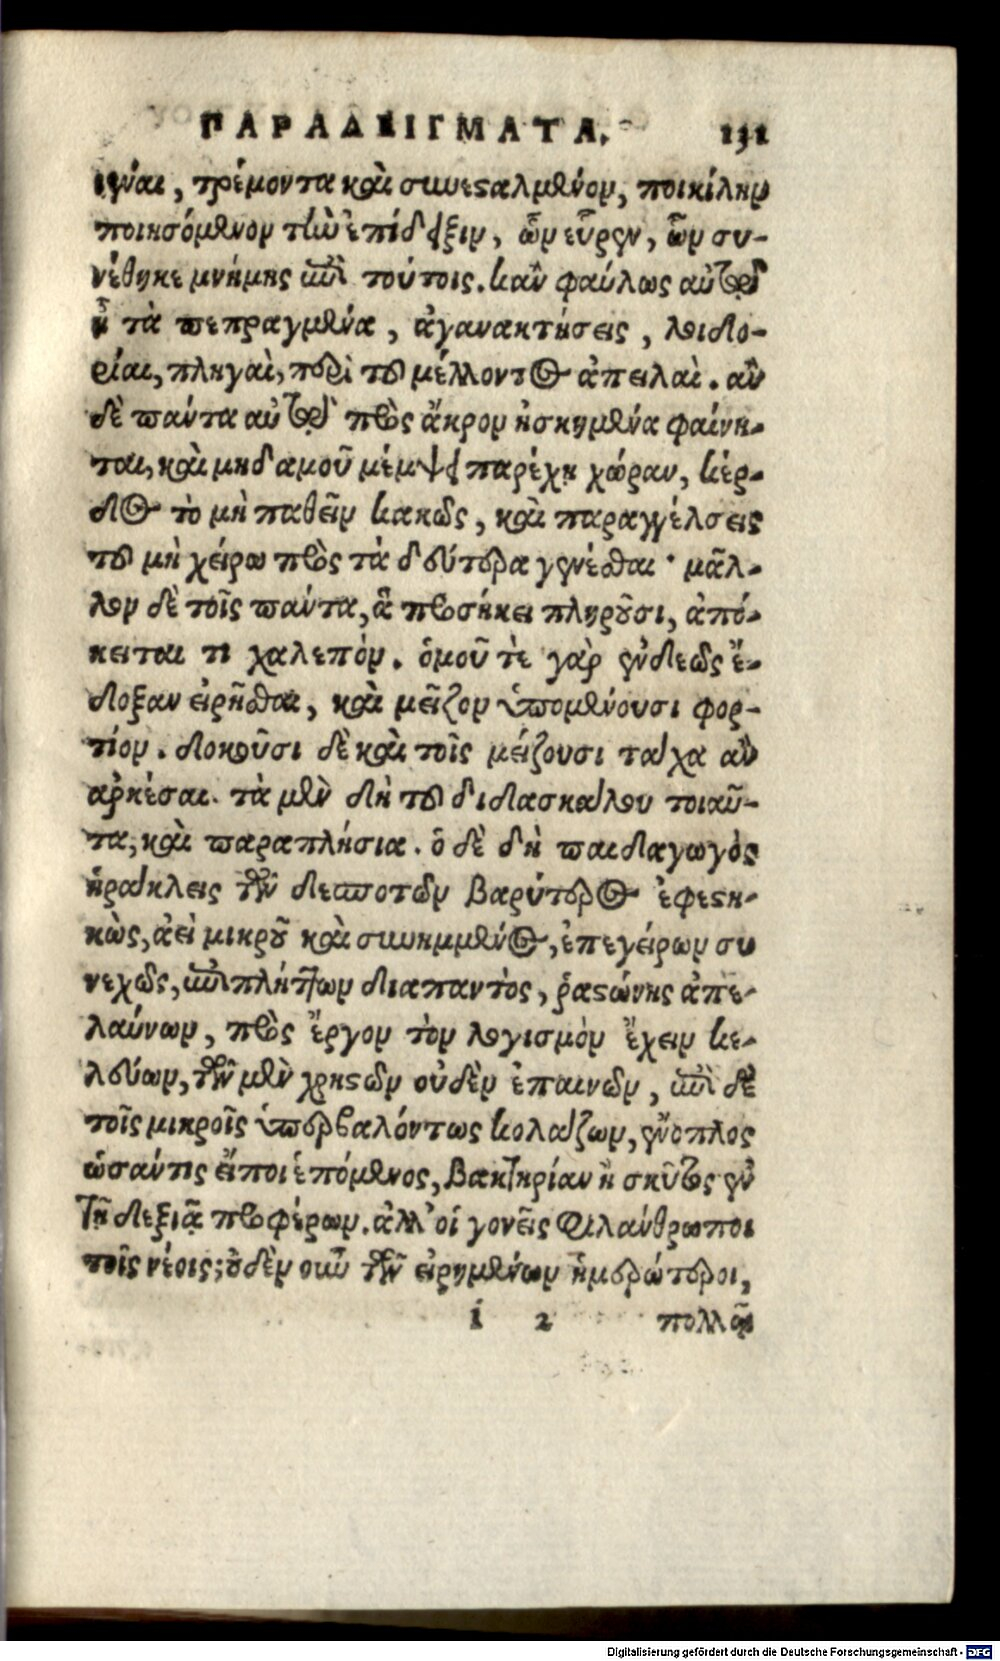 ΠΑΡΑΔΕΙΓΜΑΤΑ. 131
ιέναι, τρέμοντα καὶ συνεσαλμένον, ποικίλην
ποιησόμενον τὴν ἐπίδειξιν, ὧν εὗρεν, ὧν συ-
νέθηκε μνήμης ἐπὶ τούτοις. κἂν φαύλως αὐτῷ
ᾖ τὰ πεπραγμένα, ἀγανακτήσεις, λοιδο-
ρίαι, πληγαὶ, περὶ τοῦ μέλλοντος ἀπειλαὶ. ἂν
δὲ πάντα αὐτῷ πρὸς ἄκρον ἠσκημένα φαίνη-
ται, καὶ μηδαμοῦ μέμψει παρέχῃ χώραν, κέρ-
δος τὸ μὴ παθεῖν κακῶς, καὶ παραγγέλσεις
τοῦ μὴ χείρω πρὸς τὰ δεύτερα γενέσθαι· μᾶλ-
λον δὲ τοῖς πάντα, ἃ προσήκει πληροῦσι, ἀπό-
κειται τι χαλεπόν. ὁμοῦ τὲ γὰρ ἐνδεῶς ἔ-
δοξαν εἰρῆσθαι, καὶ μεῖζον ὑπομένουσι φορ-
τίον. δοκοῦσι δὲ καὶ τοῖς μείζουσι τάχα ἂν
ἀρκέσαι. τὰ μὲν δὴ τοῦ διδασκάλου τοιαῦ-
τα, καὶ παραπλήσια. ὁ δὲ δὴ παιδαγωγὸς
ἡράκλεις τῶν δεσποτῶν βαρύτερος ἐφεση-
κὼς, ἀεὶ μικροῦ καὶ συνημμένος, ἐπεγείρων συ
νεχῶς, ἐπιπλήττων διαπαντὸς, ῥασώνης ἀπε-
λαύνων, πρὸς ἔργον τὸν λογισμὸν ἔχειν κε-
λεύων, τῶν μὲν χρησῶν οὐδὲν ἐπαινῶν, ἐπὶ δὲ
τοῖς μικροῖς ὑπερβαλόντως κολάζων, ἔνοπλος
ὡσάντις εἴποι ἑπόμενος, βακτηρίαν ἢ σκῦτος ἐν
τῇ δεξιᾷ προφέρων. ἀλλ' οἱ γονεῖς φιλάνθρωποι
τοῖς νέοις; οὐδὲν οὖν τῶν εἰρημένων ἡμερώτεροι,
i 2 πολλῶν
Digitalisierung gefördert durch die Deutsche Forschungsgemeinschaft - DFG